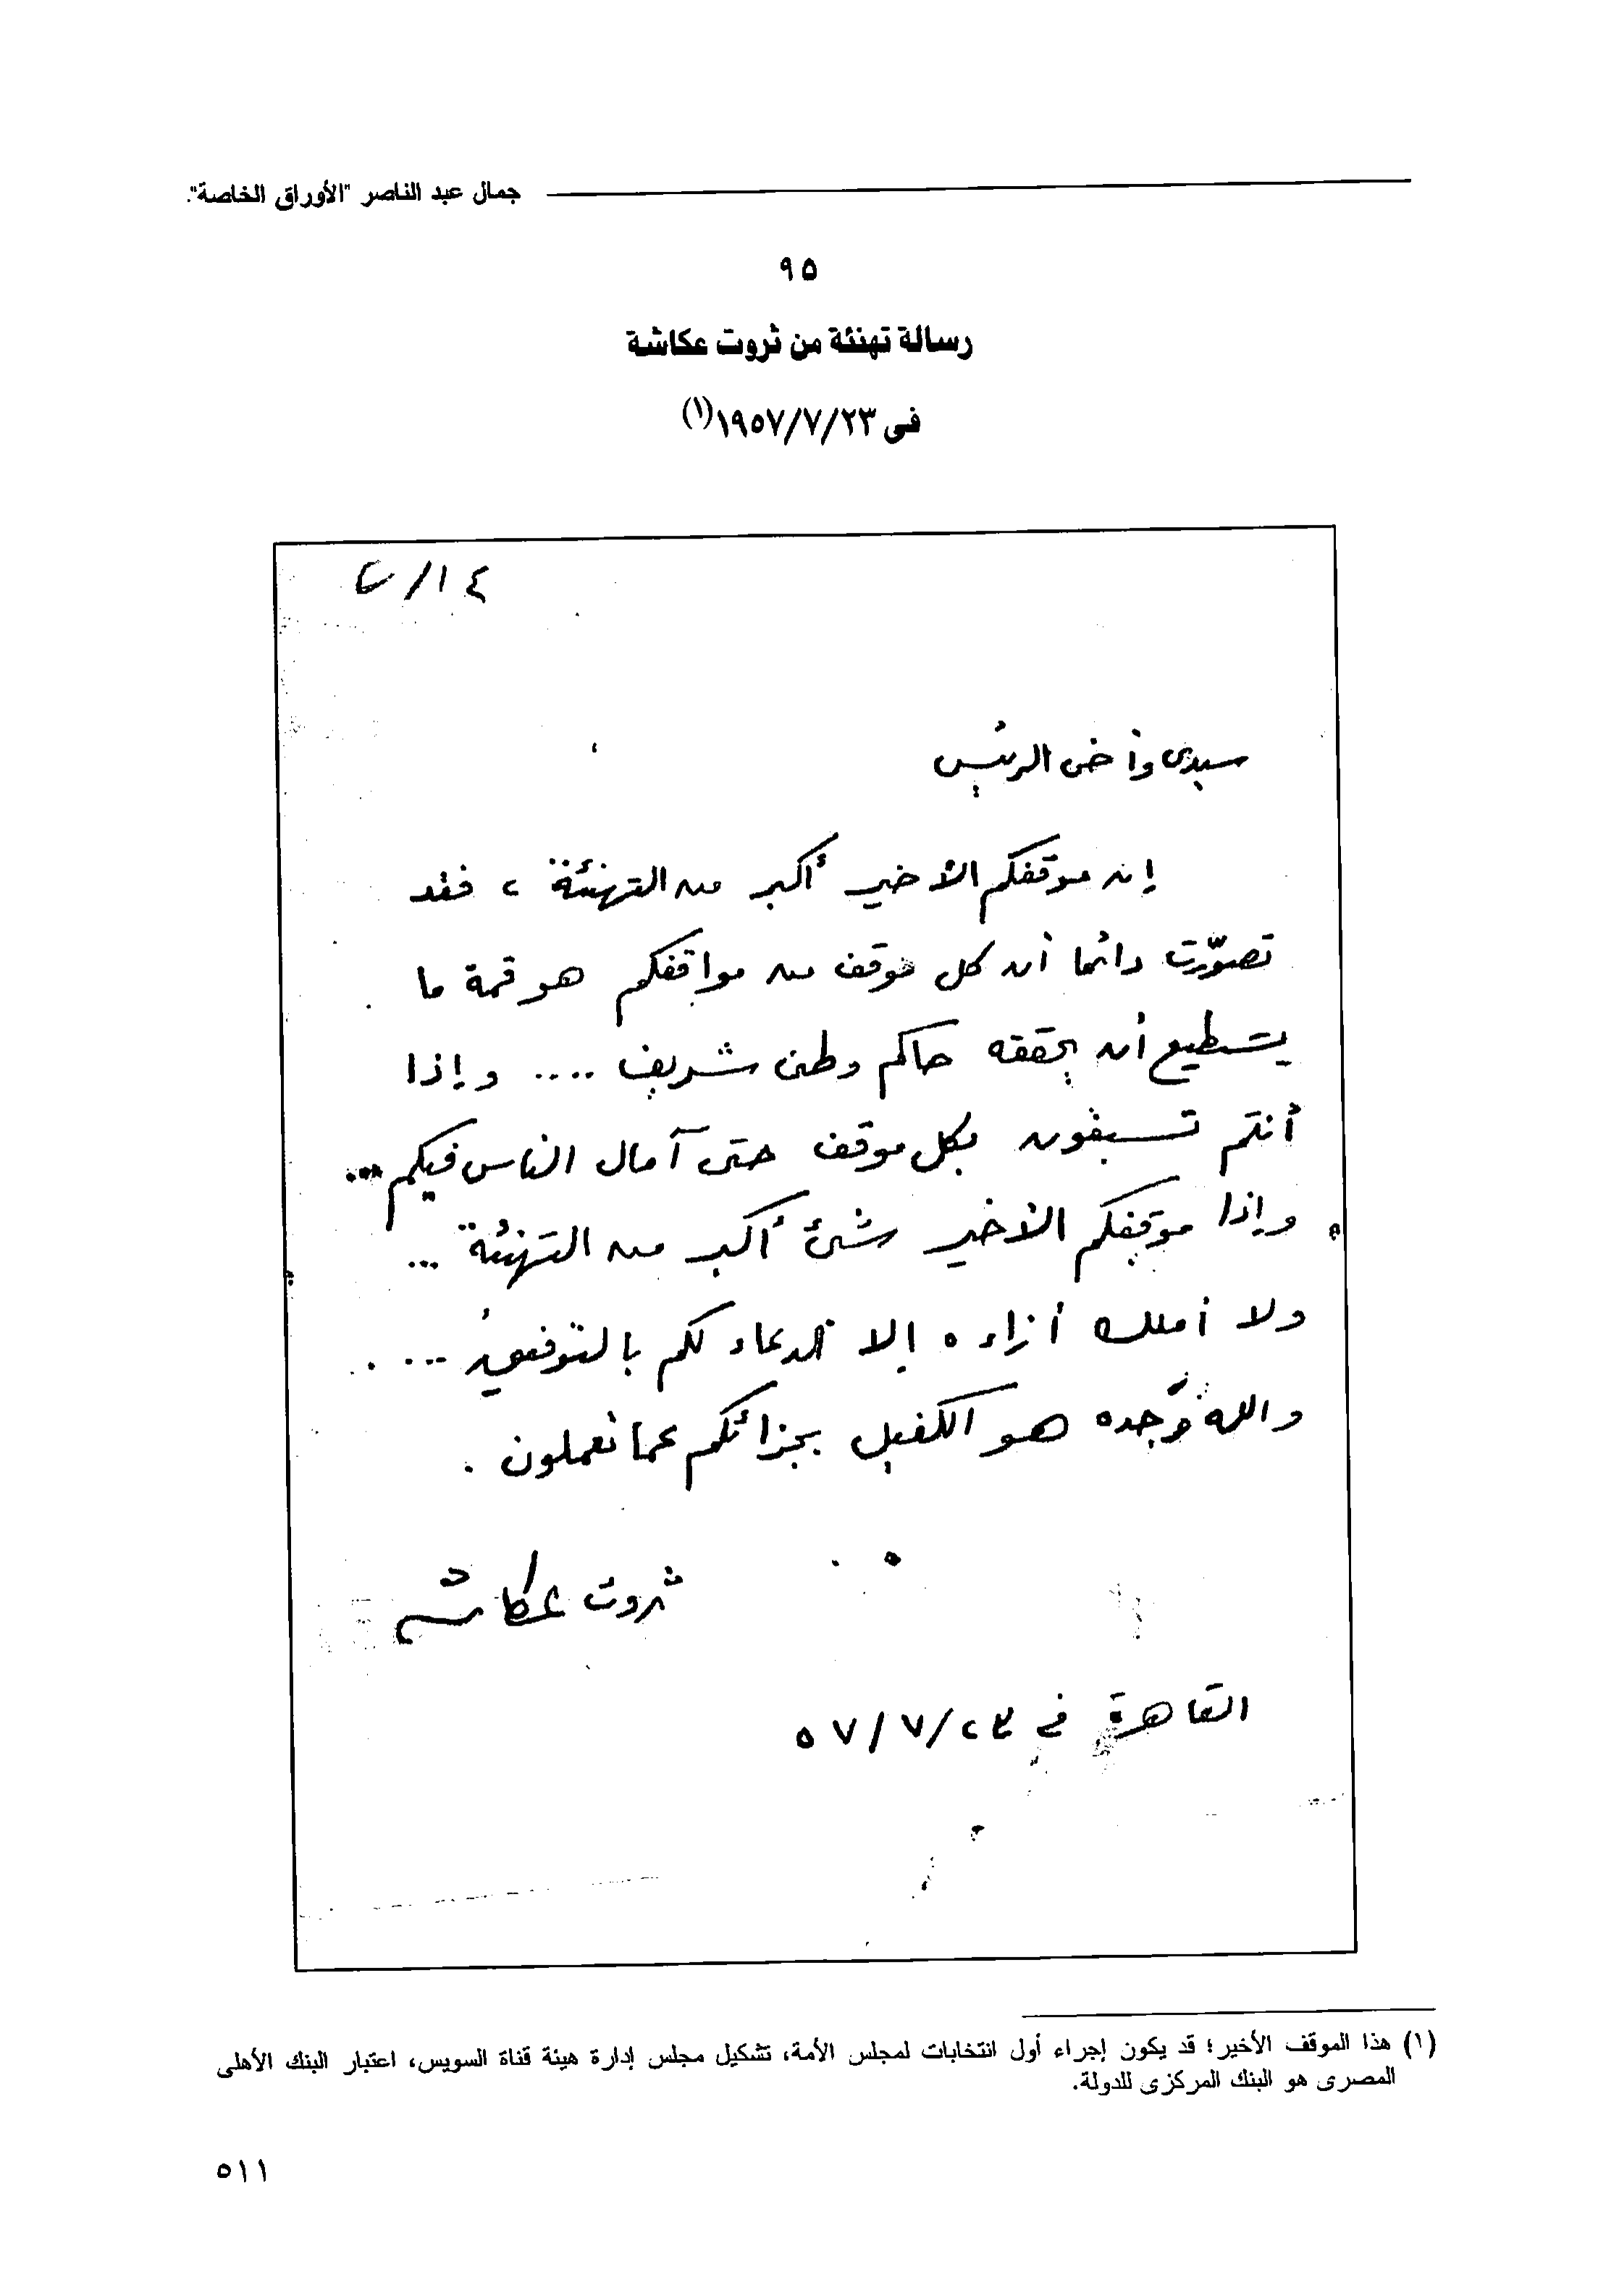 جمال عبد الناصر "الأوراق الخاصة".
٩٥
رسالة تهنئة من ثروت عكاشة
فى ١٩٥٧/٧/٢٣(١)
سيدى وأخى الرئيس
إن موقفكم الأخير أكبر من التهنئة ، فقد
تصوّرت دائما أن كل موقف من مواقفكم هو قمة ما
يستطيع أن يحققه حاكم وطنى شريف .... وإذا
أنتم تسبقون بكل موقف حتى آمال الناس فيكم ...
وإذا موقفكم الأخير شئ أكبر من التهنئة ...
ولا أملك أزاءه إلا الدعاء لكم بالتوفيق ....
والله وحده هو الكفيل بجزائكم عما تعملون .
ثروت عكاشه
القاهرة فى ٥٧/٧/٢٣
(١) هذا الموقف الأخير؛ قد يكون إجراء أول انتخابات لمجلس الأمة، تشكيل مجلس إدارة هيئة قناة السويس، اعتبار البنك الأهلى
المصرى هو البنك المركزى للدولة.
٥١١